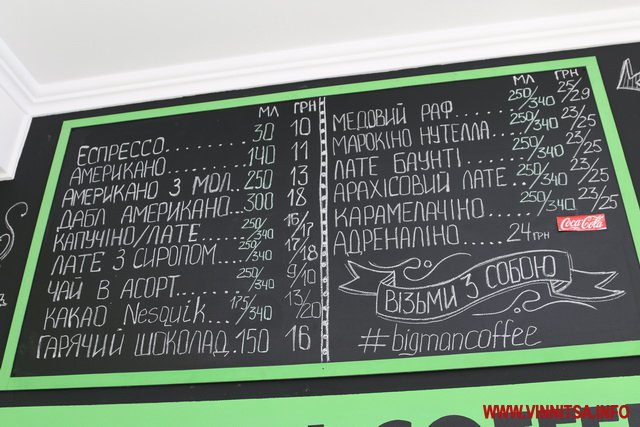 МЛ ГРН
ЕСПРЕССО 30 10
АМЕРИКАНО 140 11
АМЕРИКАНО З МОЛ.. 250 13
ДАБЛ АМЕРИКАНО... 300 18
КАПУЧІНО/ЛАТЕ.... 250/340 16/17
ЛАТЕ З СИРОПОМ... 250/340 17/18
ЧАЙ В АСОРТ....... 250/340 9/10
КАКАО Nesquik... 175/340 13/20
ГАРЯЧИЙ ШОКОЛАД. 150 16
МЛ ГРН
МЕДОВИЙ РАФ....... 250/340 25/29
МАРОКІНО НУТЕЛЛА... 250/340 23/25
ЛАТЕ БАУНТІ....... 250/340 23/25
АРАХІСОВИЙ ЛАТЕ... 250/340 23/25
КАРАМЕЛАЧІНО...... 250/340 23/25
АДРЕНАЛІНО..... 24 ГРН
Coca-Cola
ВІЗЬМИ З СОБОЮ
#bigmancoffee
WWW.VINNITSA.INFO